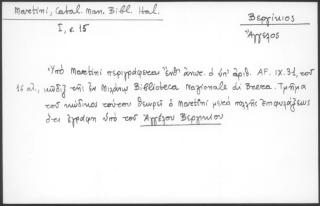 Martini, Catal. Man. Bibl. Ital.
I, σ. 15
Βεργίκιος
Ἄγγελος
Ὑπὸ Martini περιγράφεται ὁ ὑπ' ἀριθ. AF. IX. 31, τοῦ
16 αἰ., κῶδιξ τῆς ἐν Μιλάνῳ Biblioteca Nazionale di Brera. Τμῆμα
τοῦ κώδικος τούτου θεωρεῖ ὁ Martini μετὰ πολλῆς ἐπιφυλάξεως
ὅτι ἐγράφη ὑπὸ τοῦ Ἀγγέλου Βεργικίου